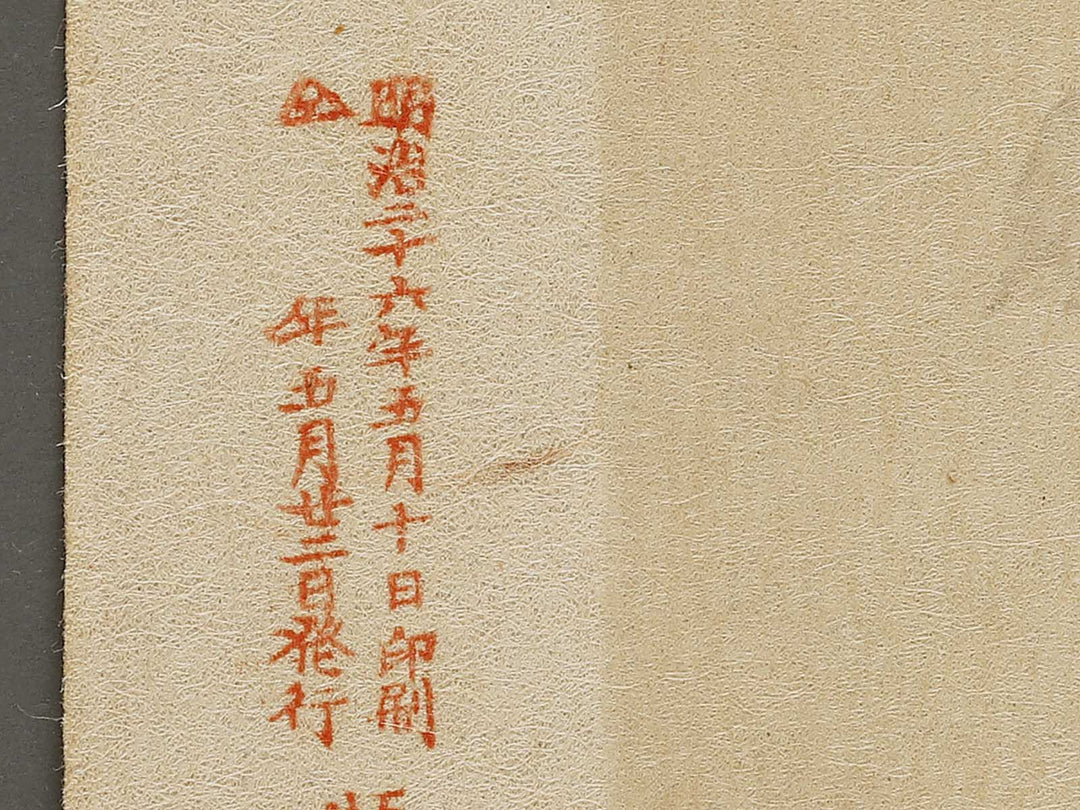 明治二十六年五月十日印刷
仝年五月廿二日発行